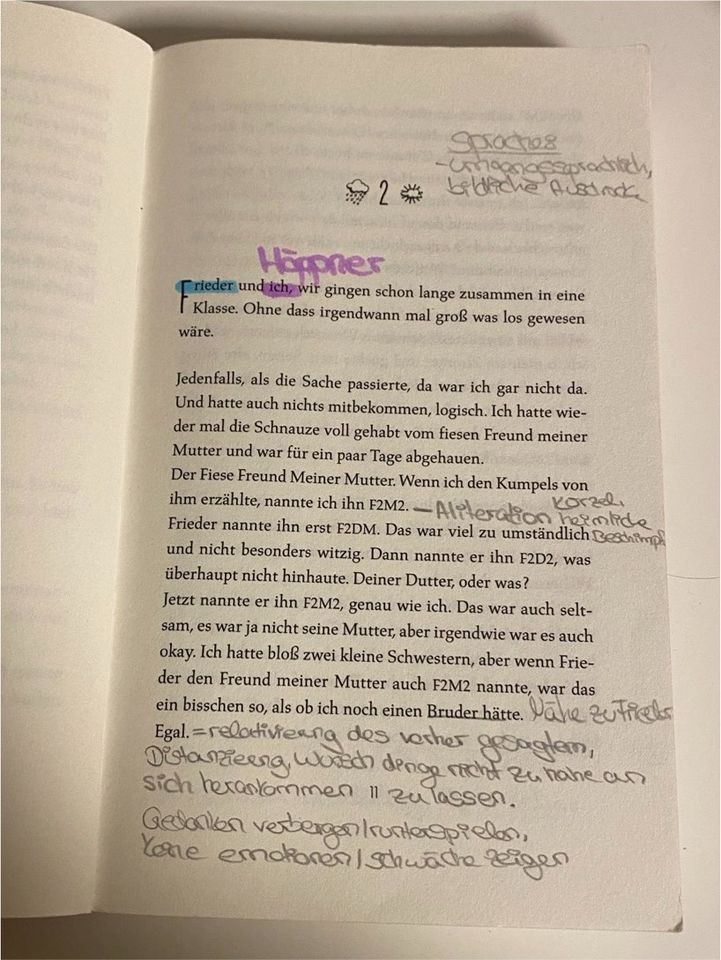 Sprache:
-umgangssprachlich,
bildliche Ausdrück
2
Höppner
Frieder und ich, wir gingen schon lange zusammen in eine
Klasse. Ohne dass irgendwann mal groß was los gewesen
wäre.
Jedenfalls, als die Sache passierte, da war ich gar nicht da.
Und hatte auch nichts mitbekommen, logisch. Ich hatte wie-
der mal die Schnauze voll gehabt vom fiesen Freund meiner
Mutter und war für ein paar Tage abgehauen.
Der Fiese Freund Meiner Mutter. Wenn ich den Kumpels von
ihm erzählte, nannte ich ihn F2M2. – Aliteration Kürzel, heimliche Beschimpf
Frieder nannte ihn erst F2DM. Das war viel zu umständlich
und nicht besonders witzig. Dann nannte er ihn F2D2, was
überhaupt nicht hinhaute. Deiner Dutter, oder was?
Jetzt nannte er ihn F2M2, genau wie ich. Das war auch selt-
sam, es war ja nicht seine Mutter, aber irgendwie war es auch
okay. Ich hatte bloß zwei kleine Schwestern, aber wenn Frie-
der den Freund meiner Mutter auch F2M2 nannte, war das
ein bisschen so, als ob ich noch einen Bruder hätte. Nähe zu Frieder
Egal. = relativierung des vorher gesagtem,
Distanzierng, Wunsch dinge nicht zu nahe an
sich herankommen " zu lassen.
Gedanken verbergen/runterspielen,
Keine emotionen/schwäche zeigen